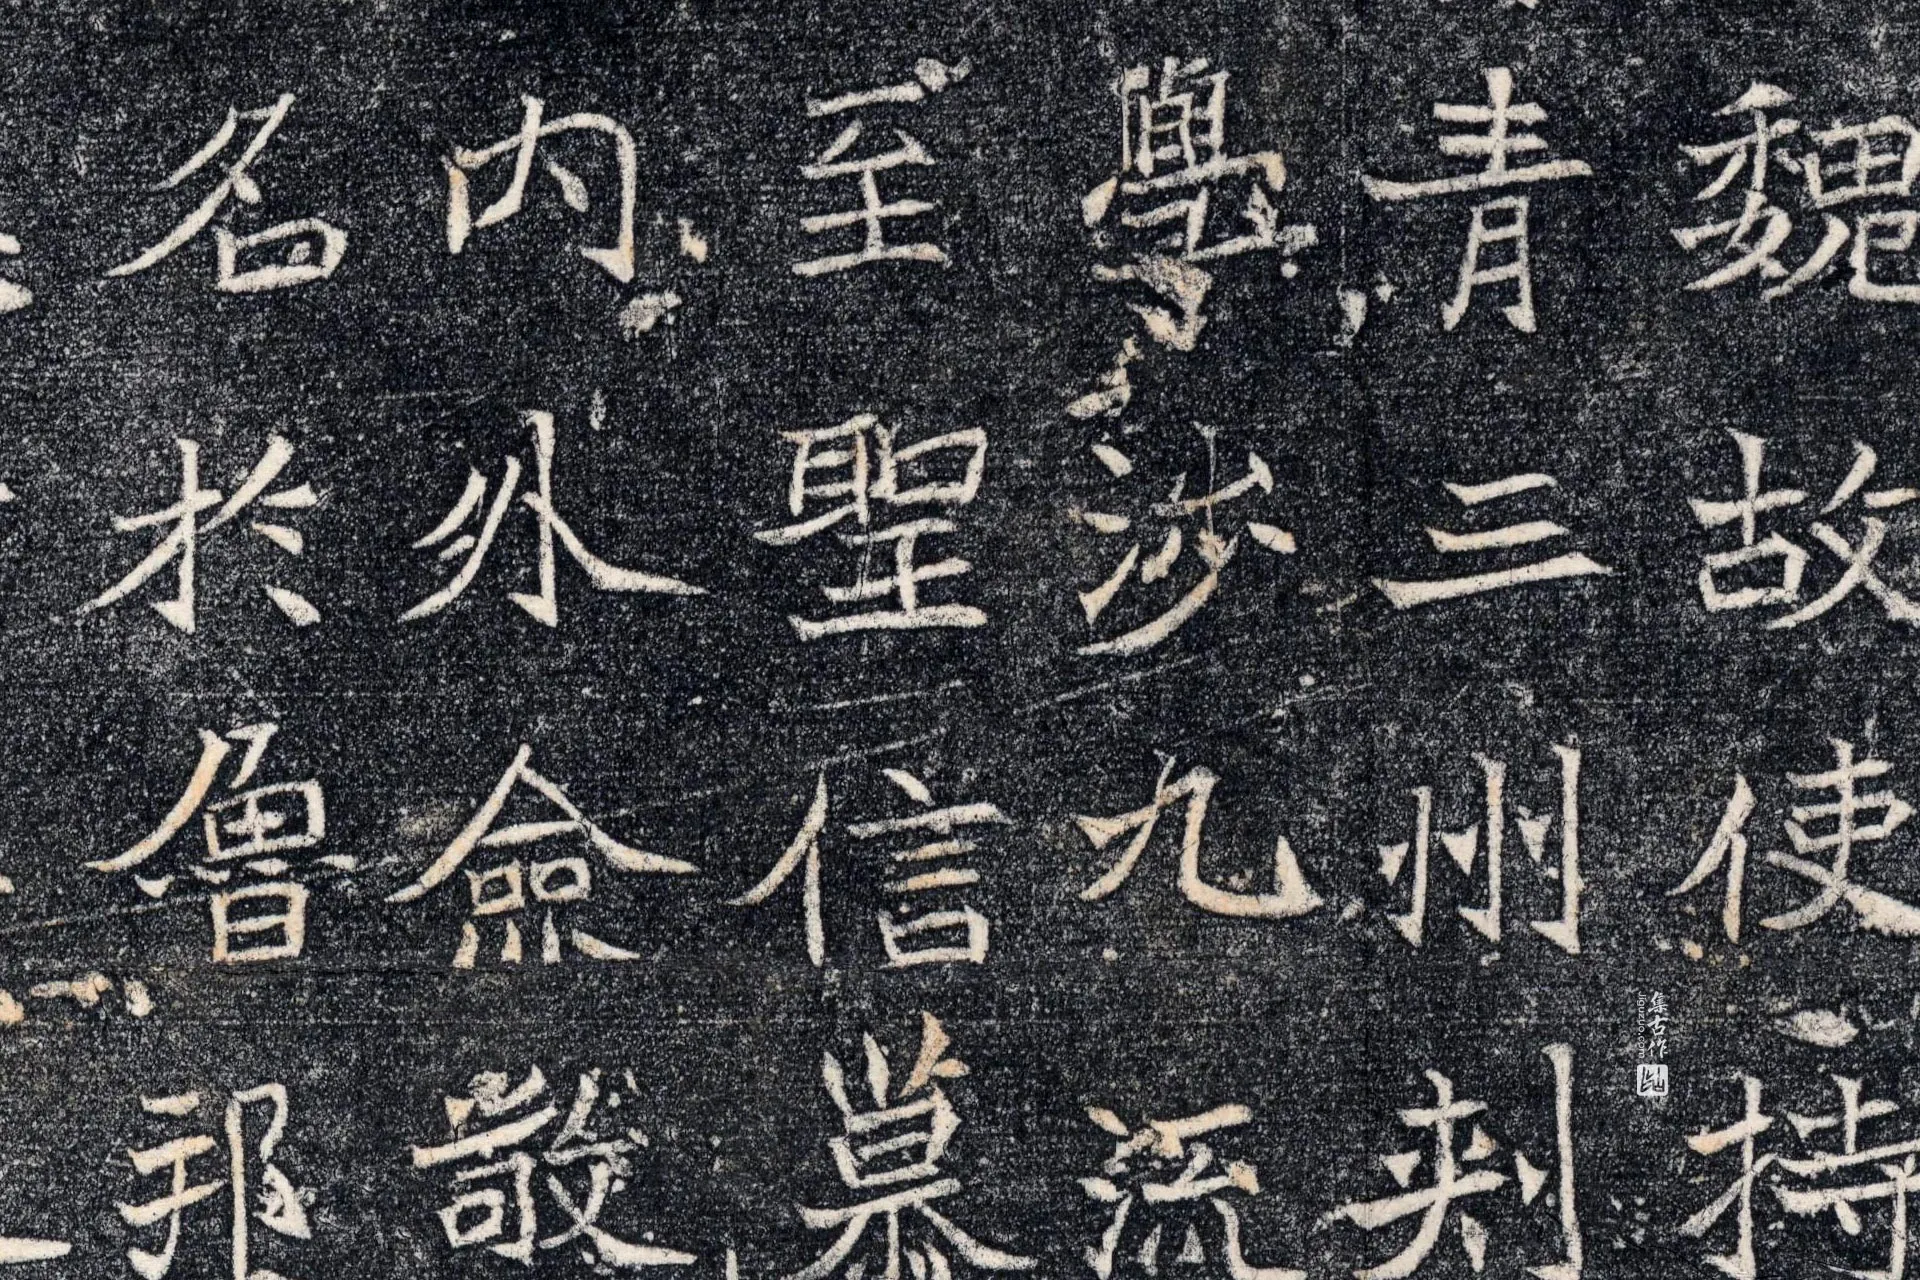 魏故使持
青三州刺
學涉九流
至聖信慕
内外僉敬
名於魯邦
集古作
jiguzuo.com